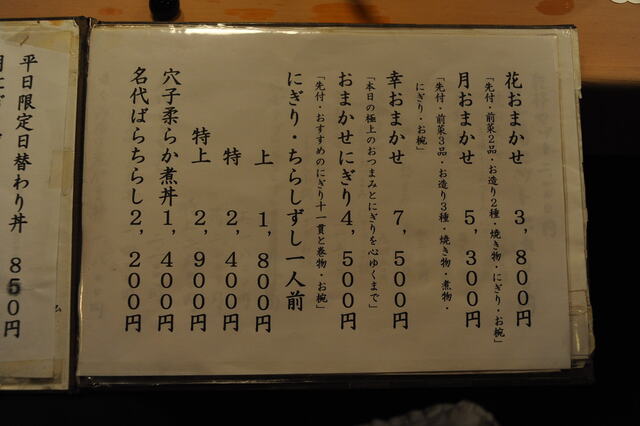 花おまかせ 3,800円
「先付・前菜2品・お造り2種・焼き物・にぎり・お椀」
月おまかせ 5,300円
「先付・前菜3品・お造り3種・焼き物・煮物・
にぎり・お椀」
幸おまかせ 7,500円
「本日の極上のおつまみとにぎりを心ゆくまで」
おまかせにぎり4,500円
「先付・おすすめのにぎり十一貫と巻物・お椀」
にぎり・ちらしずし一人前
上 1,800円
特 2,400円
特上 2,900円
穴子柔らか煮丼 1,400円
名代ばらちらし 2,200円
平日限定日替わり丼 850円